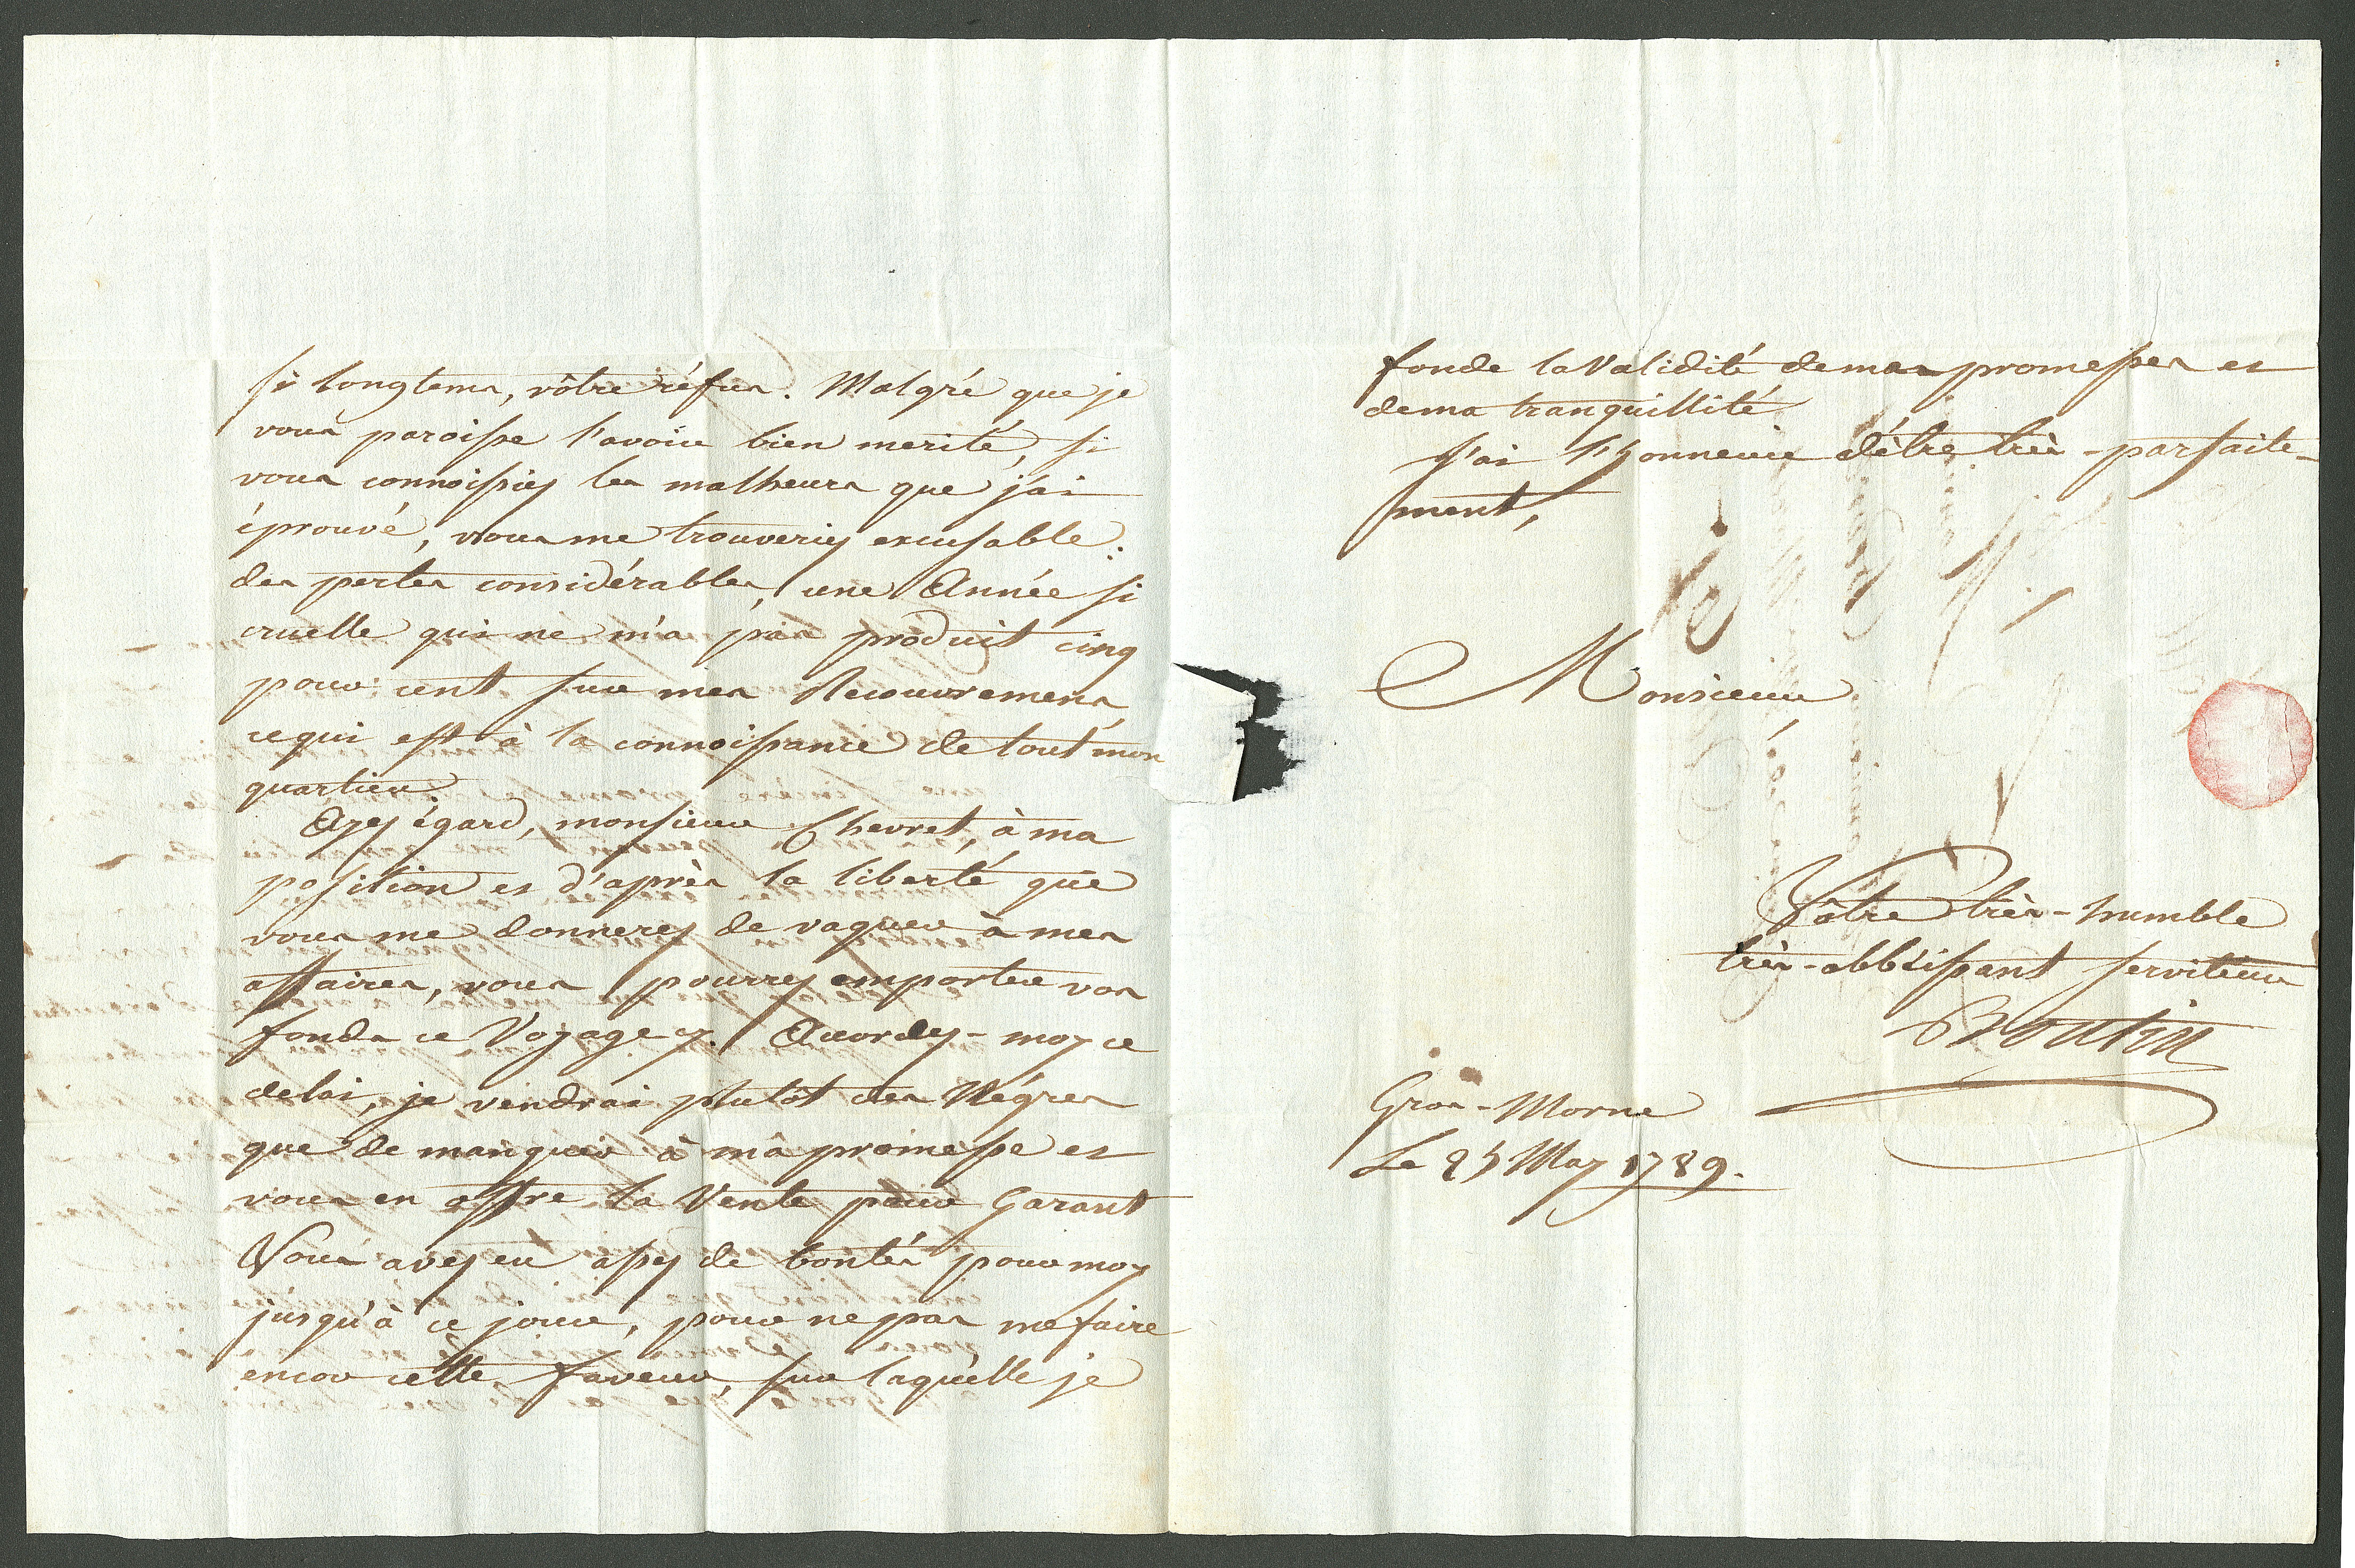 si longtems, vôtre réfus. Malgré que je
vous paroisse l'avoir bien merité, si
vous connoissiez les malheurs que j'ai
éprouvé, vous me trouveriez excusable:
des pertes considérables, une Année si
cruelle qui ne m'a pas produit cinq
pour cent sur mes Recouvremens,
ce qui est à la connoissance de tout mon
quartier.
Ayez égard, monsieur Chevret, à ma
position et d'après la liberté que
vous me donnerez de vaquer à mes
affaires, vous pourrez emporter vos
fonds ce Voyage cy. Accordez-moy ce
delai, je vendrai plutôt des Négres
que de manquer à ma promesse et
vous en offre la Vente pour Garant
Vous avez eu assez de bontés pour moy
jusqu'à ce jour, pour ne pas me faire
encor cette faveur, sur laquelle je
fonde la Validité de mes promesses et
de ma tranquillité
J'ai l'honneur d'être très-parfaite-
ment,
Monsieur
Vôtre très-humble
très-obbéissant serviteur
Boutin
Gros-Morne
Le 25 May 1789.